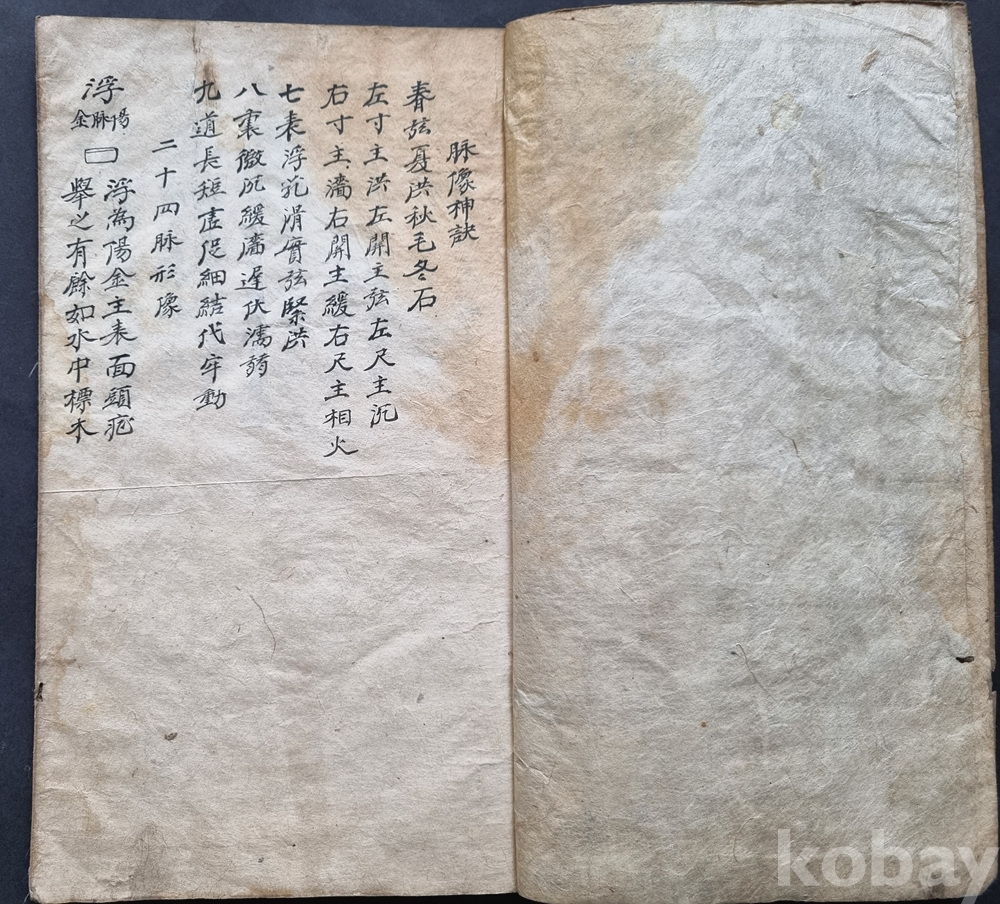 脉像神訣
春弦夏洪秋毛冬石
左寸主洪左關主弦左尺主沉
右寸主濇右關主緩右尺主相火
七表浮芤滑實弦緊洪
八裏微沉緩濇遲伏濡弱
九道長短虛促細結代牢動
二十四脉形像
浮
陽脉金
浮為陽金主表面頭疼
舉之有餘如水中標木
kobay